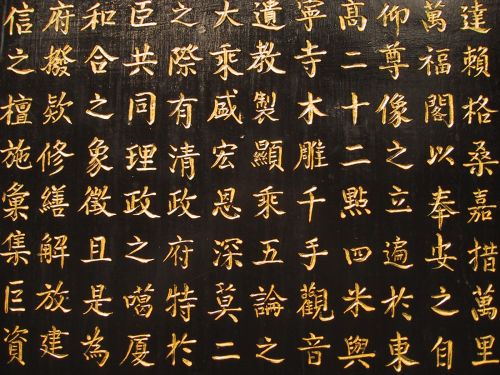 達賴格桑嘉措萬里
萬福閣以奉安之自
仰尊像之立遍於東
高二十二點四米與
寧寺木雕千手觀音
遺教製顯乘五論之
大乘感宏恩深莫二
之際有清政府特於
臣共同理政之噶厦
和合之象徵且是為
府撥欵修繕解放建
信之檀施彙集巨資